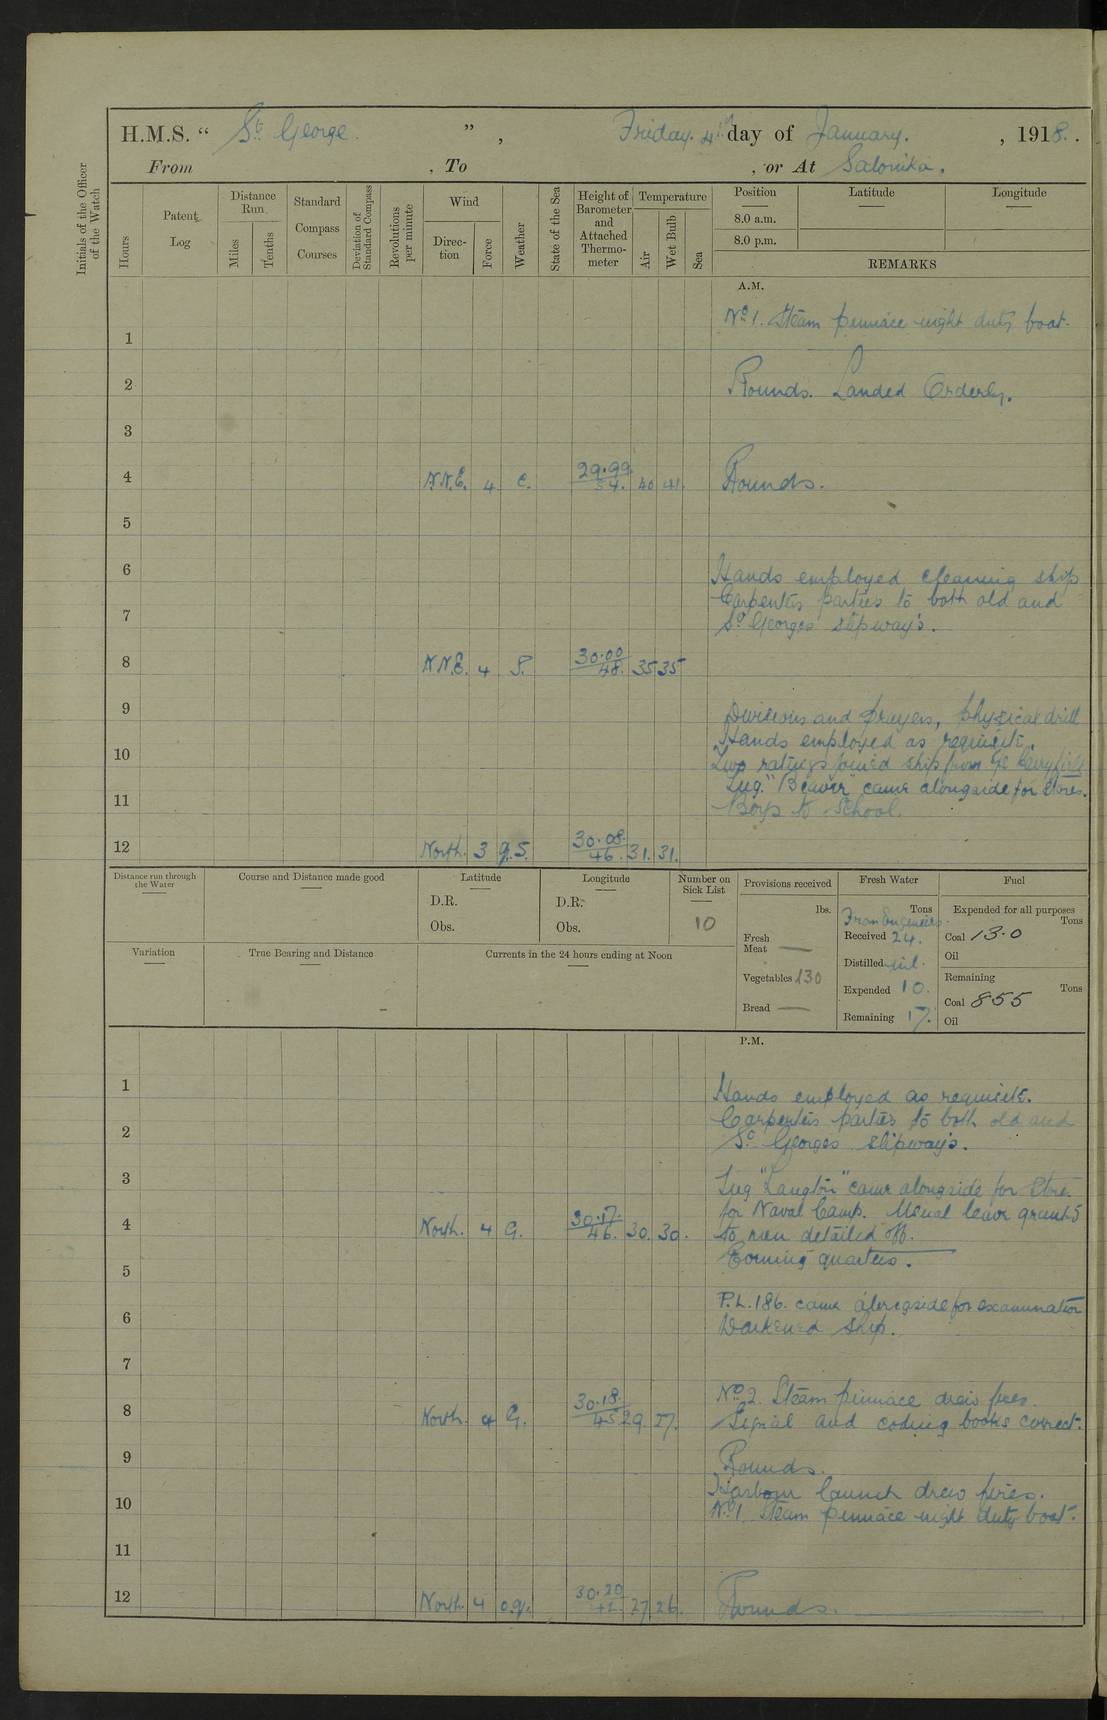 H.M.S. “ St. George ” , Friday. 4th day of January. , 1918.
From , To , or At Salonika.
Initials of the Officer of the Watch
Hours
Patent Log
Distance Run
Miles
Tenths
Standard Compass Courses
Deviation of Standard Compass
Revolutions per minute
Wind
Direction
Force
Weather
State of the Sea
Height of Barometer and Attached Thermometer
Temperature
Air
Wet Bulb
Sea
Position Latitude Longitude
8.0 a.m.
8.0 p.m.
REMARKS
A.M.
No 1. Steam pinnace night duty boat.
1
2 Rounds. Landed Orderly.
3
4 N.N.E. 4 c. 29.99 54. 40 41. Rounds.
5
6 Hands employed cleaning ship
Carpenters parties to both old and
7 St Georges slipway's.
8 N.N.E. 4 30.00 48. 35 35
9 Divisions and prayers, physical drill
Hands employed as requisite.
10 Two ratings joined ship from
Tug. "Beaver" came alongside for stores.
11 Boys to School.
12 North. 3 30.08. 46. 31. 31.
Distance run through the Water
Course and Distance made good
Latitude
D.R.
Obs.
Longitude
D.R.
Obs.
Number on Sick List
10
Provisions received
lbs.
Fresh Meat —
Vegetables 130
Bread —
Fresh Water
Tons
Received 24.
Distilled nil.
Expended 10.
Remaining 17.
Fuel
Expended for all purposes
Tons
Coal 13.0
Oil
Remaining
Tons
Coal 855
Oil
Variation
True Bearing and Distance
Currents in the 24 hours ending at Noon
P.M.
1 Hands employed as requisite.
Carpenters parties to both old and
2 St Georges slipway's.
3 Tug "Langton" came alongside for Store.
for Naval Camp. Usual leave granted
4 North. 4 G. 30.17. 46. 30. 30. to men detailed off.
Evening quarters.
5
P.L.186. came alongside for examination
6 Darkened ship.
7
No 2. Steam pinnace drew fires.
8 North. 4 G. 30.18. 45 29. 27. Signal and coding books correct.
9 Rounds.
Harbour launch drew fires.
10 No 1. Steam pinnace night duty boat.
11
12 North. 4 o.g. 30.20 42. 27. 26. Rounds.